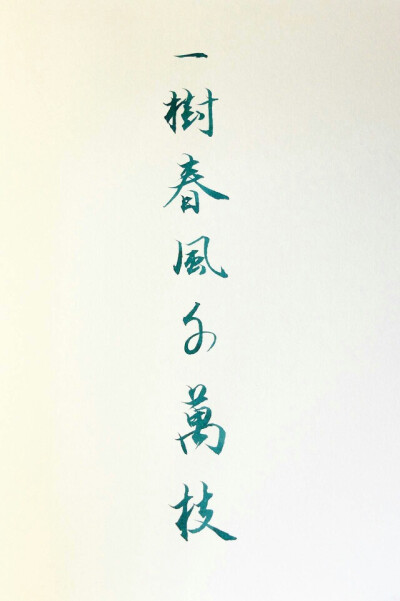 一樹春風千萬枝